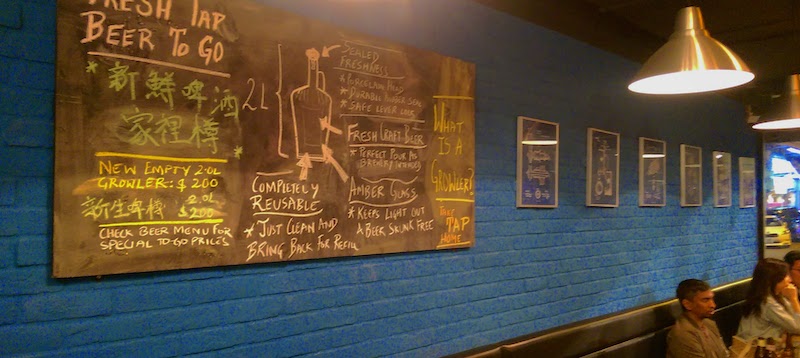 FRESH TAP
BEER TO GO
* 新鮮啤酒
家裡樽
NEW EMPTY 2.0L
GROWLER: $200
2.0L
$200
CHECK BEER MENU FOR
SPECIAL TO-GO PRICES
2L
COMPLETELY
REUSABLE
* JUST CLEAN AND
BRING BACK FOR REFILL
SEALED
FRESHNESS
* PORCELAIN
* DURABLE RUBBER SEAL
* SAFE LEVER LOCK
FRESH CRAFT BEER
* PERFECT POUR AS
BREWERY INTENDED
AMBER GLASS
* KEEPS LIGHT OUT
& BEER SKUNK FREE
WHAT
IS A
GROWLER?
TAP
HOME